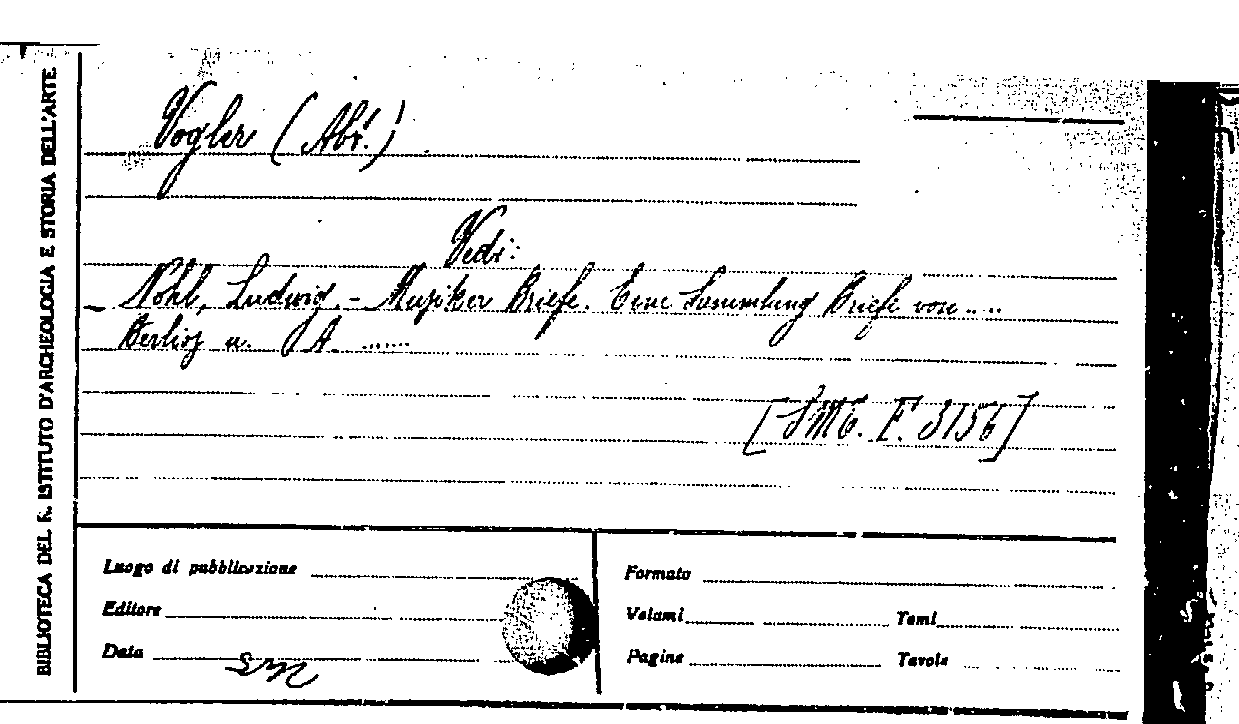 BIBLIOTECA DEL R. ISTITUTO D'ARCHEOLOGIA E STORIA DELL'ARTE
Vogler (Abt.)
Vedi:
Nohl, Ludwig. - Musiker Briefe. Eine Sammlung Briefe von ....
Berlioz u. A. ......
[SMC. F. 3156]
Luogo di pubblicazione
Formato
Editore
Volumi Tomi
Data
Pagine Tavole